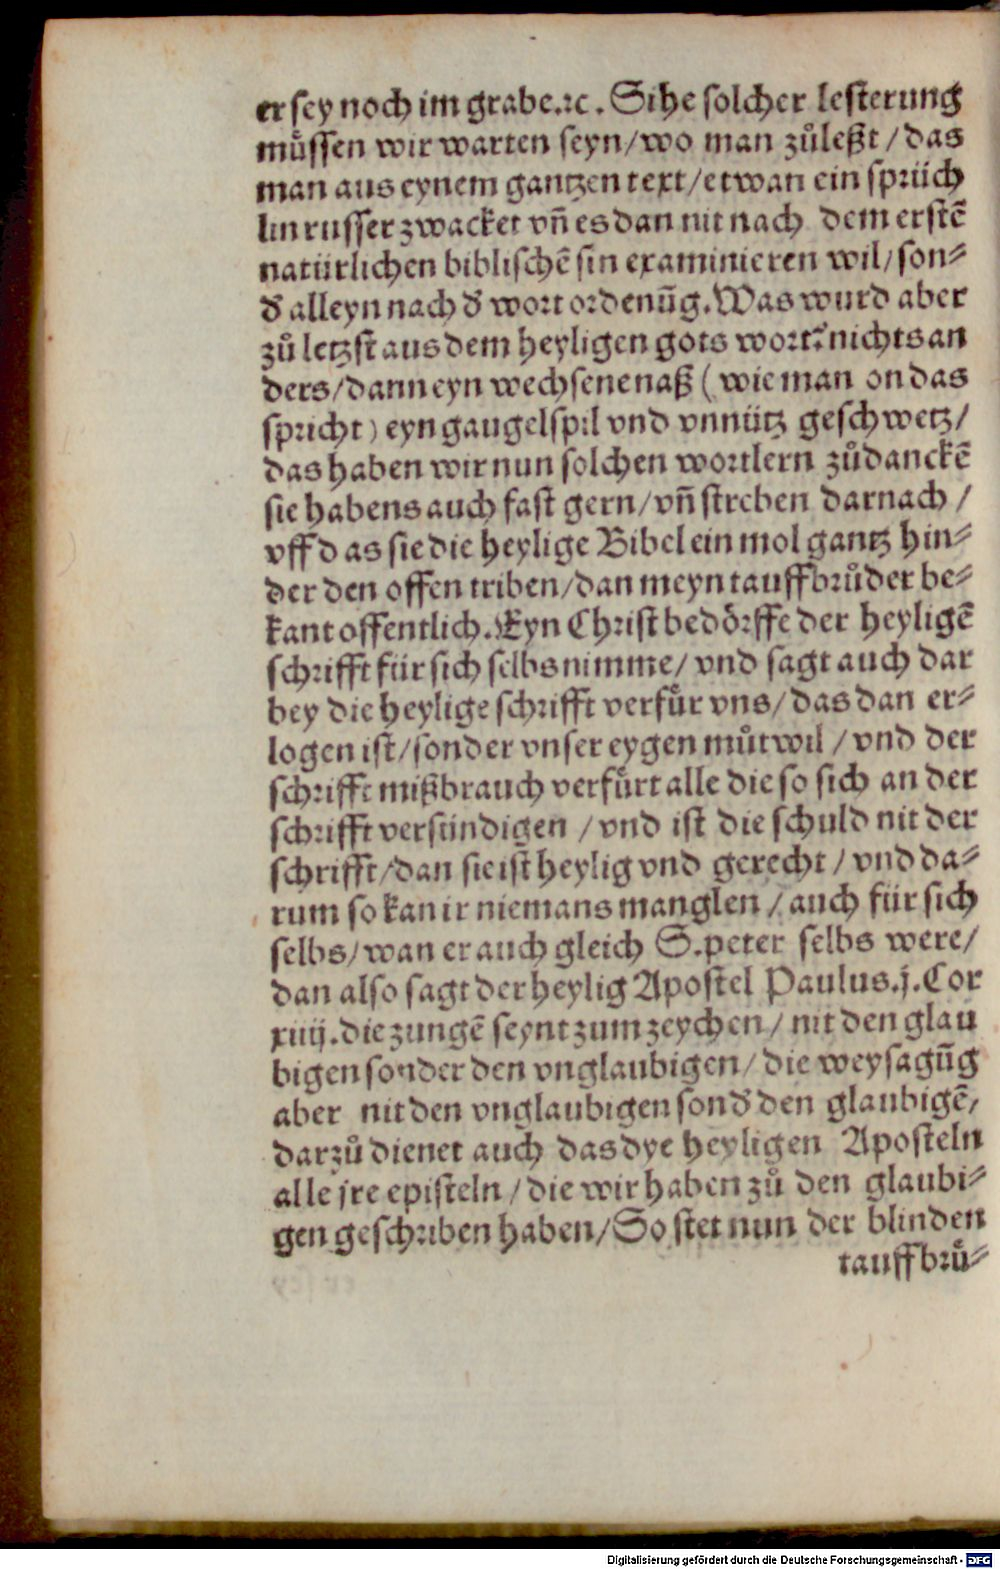 er sey noch im grabe.ꝛc. Sihe solcher lesterung
muͤssen wir warten seyn/wo man zuͦleßt/das
man aus eynem gantzen text/etwan ein spruͤch
lin russer zwacket vñ es dan nit nach dem erstē
natuͤrlichen biblischē sin examinieren wil/son⸗
d̕ alleyn nach d̕ wort ordenūg. Was wurd aber
zuͦ letzst aus dem heyligen gots wort? nichts an
ders/dann eyn wechsene naß ( wie man on das
spricht ) eyn gaugelspil vnd vnnuͤtz geschwetz/
das haben wir nun solchen wortlern zuͦdanckē
sie habens auch fast gern/vñ streben darnach /
vff das sie die heylige Bibel ein mol gantz hin⸗
der den offen triben/dan meyn tauffbruͦder be⸗
kant offentlich. Eyn Christ bedoͤrffe der heyligē
schrifft fuͤr sich selbs nimme/ vnd sagt auch dar
bey die heylige schrifft verfuͤr vns/das dan er⸗
logen ist/sonder vnser eygen muͦtwil / vnd der
schrifft mißbrauch verfuͤrt alle die so sich an der
schrifft versuͤndigen / vnd ist die schuld nit der
schrifft/dan sie ist heylig vnd gerecht / vnd da⸗
rum so kan ir niemans manglen / auch fuͤr sich
selbs/wan er auch gleich S. peter selbs were/
dan also sagt der heylig Apostel Paulus.j. Cor
xiiij. die zungē seynt zum zeychen/ nit den glau
bigen sonder den vnglaubigen/ die weysagūg
aber nit den vnglaubigen sond̕ den glaubigē,
darzuͦ dienet auch das dye heyligen Aposteln
alle jre episteln / die wir haben zuͦ den glaubi⸗
gen geschriben haben/So stet nun der blinden
tauffbruͤ⸗
Digitalisierung gefördert durch die Deutsche Forschungsgemeinschaft - DFG